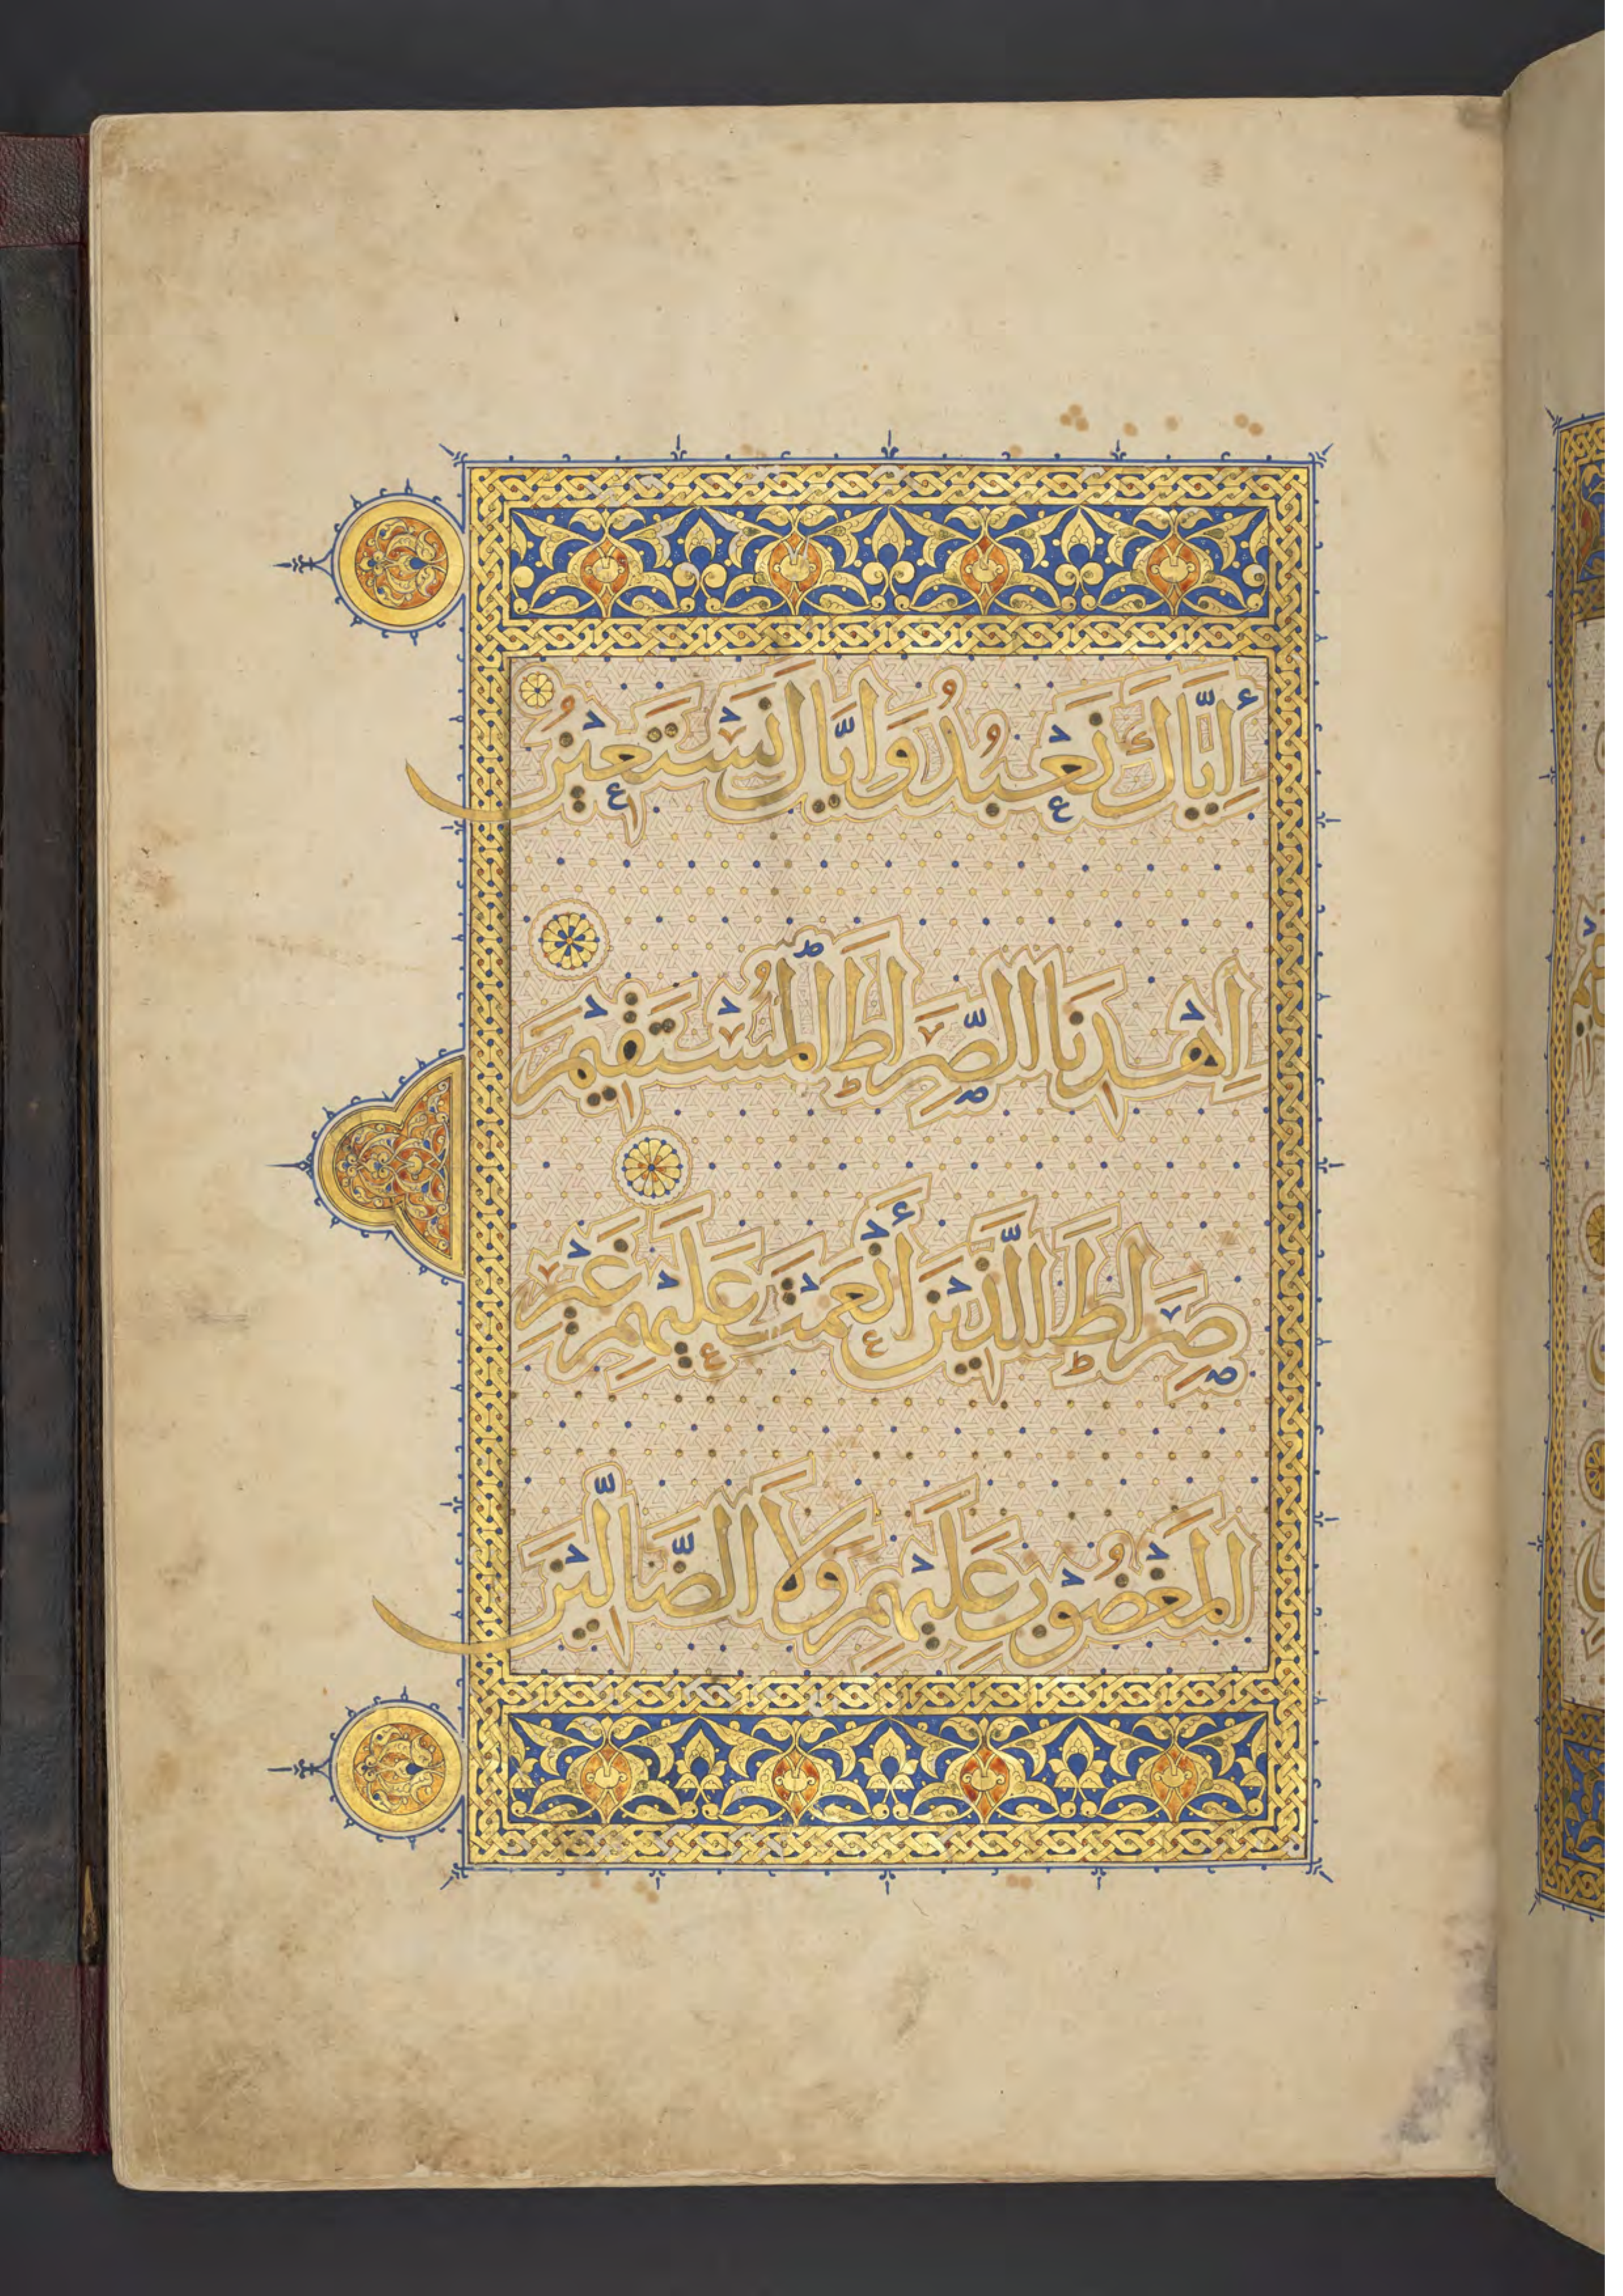 إِيَّاكَ نَعْبُدُ وَإِيَّاكَ نَسْتَعِيْنُ
اِهْدِنَا الصِّرَاطَ الْمُسْتَقِيْمَ
صِرَاطَ الَّذِيْنَ أَنْعَمْتَ عَلَيْهِمْ غَيْرِ
الْمَغْضُوْبِ عَلَيْهِمْ وَلَا الضَّالِّيْنَ